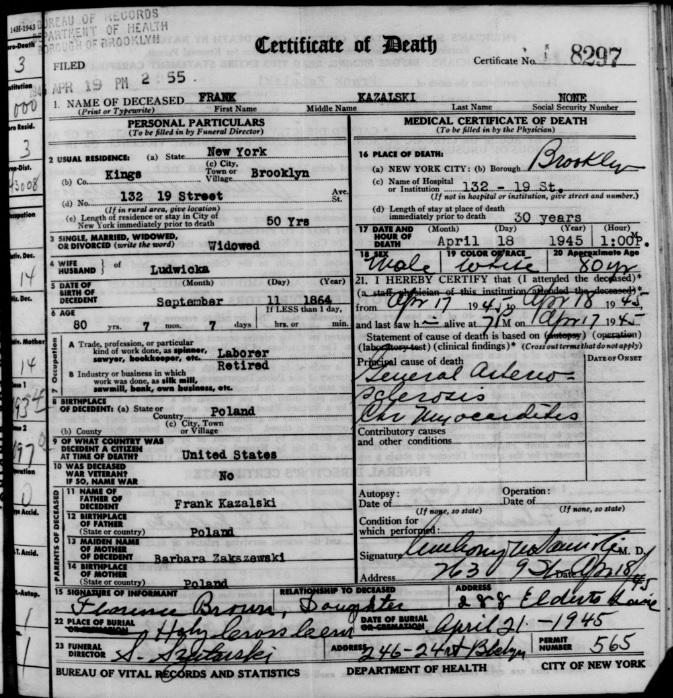 BUREAU OF RECORDS
DEPARTMENT OF HEALTH
BOROUGH OF BROOKLYN
FILED
APR 19 PM 2 55
Certificate of Death
Certificate No. 8297
1. NAME OF DECEASED FRANK KAZALSKI NONE
(Print or Typewrite) First Name Middle Name Last Name Social Security Number
PERSONAL PARTICULARS
(To be filled in by Funeral Director)
2 USUAL RESIDENCE: (a) State New York
(b) Co. Kings (c) City, Town or Village Brooklyn
(d) No. 132 19 Street Ave. St.
(If in rural area, give location)
(e) Length of residence or stay in City of New York immediately prior to death 50 Yrs
3 SINGLE, MARRIED, WIDOWED, OR DIVORCED (write the word) Widowed
4 WIFE HUSBAND } of Ludwicka
5 DATE OF BIRTH OF DECEDENT (Month) (Day) (Year)
September 11 1864
6 AGE If LESS than 1 day,
80 yrs. 7 mos. 7 days hrs. or min.
7 Occupation
A Trade, profession, or particular kind of work done, as spinner, sawyer, bookkeeper, etc. Laborer
Retired
B Industry or business in which work was done, as silk mill, sawmill, bank, own business, etc.
8 BIRTHPLACE OF DECEDENT: (a) State or Country Poland
(b) County (c) City, Town or Village
9 OF WHAT COUNTRY WAS DECEDENT A CITIZEN AT TIME OF DEATH? United States
10 WAS DECEASED WAR VETERAN? IF SO, NAME WAR No
PARENTS OF DECEASED
11 NAME OF FATHER OF DECEDENT Frank Kazalski
12 BIRTHPLACE OF FATHER (State or country) Poland
13 MAIDEN NAME OF MOTHER OF DECEDENT Barbara Zakszewski
14 BIRTHPLACE OF MOTHER (State or country) Poland
MEDICAL CERTIFICATE OF DEATH
(To be filled in by the Physician)
16 PLACE OF DEATH:
(a) NEW YORK CITY: (b) Borough Brooklyn
(c) Name of Hospital or Institution 132 - 19 St.
(If not in hospital or institution, give street and number.)
(d) Length of stay at place of death immediately prior to death 30 years
17 DATE AND HOUR OF DEATH (Month) (Day) (Year) (Hour)
April 18 1945 1:00 P. M.
18 SEX 19 COLOR OR RACE 20 Approximate Age
Male White 80 yr
21. I HEREBY CERTIFY that (I attended the deceased)*
(a staff physician of this institution attended the deceased)*
from Apr 17 1945 to Apr 18 1945
and last saw h alive at M on Apr 17 1945
Statement of cause of death is based on (autopsy) (operation)
(laboratory test) (clinical findings)* (Cross out terms that do not apply)
Principal cause of death DATE OF ONSET
General Arterio-
sclerosis
Chr Myocarditis
Contributory causes
and other conditions
Autopsy: Operation:
Date of Date of
(If none, so state) (If none, so state)
Condition for
which performed:
Signature Anthony M. D.
Address 263 9 St Date Apr 18/45
15 SIGNATURE OF INFORMANT RELATIONSHIP TO DECEASED ADDRESS
Florence Brown, Daughter 288 Elderts Lane
22 PLACE OF BURIAL OR CREMATION Holy Cross Cem DATE OF BURIAL OR CREMATION April 21 - 1945
23 FUNERAL DIRECTOR S. ADDRESS 246-24 St Bklyn PERMIT NUMBER 565
BUREAU OF VITAL RECORDS AND STATISTICS DEPARTMENT OF HEALTH CITY OF NEW YORK